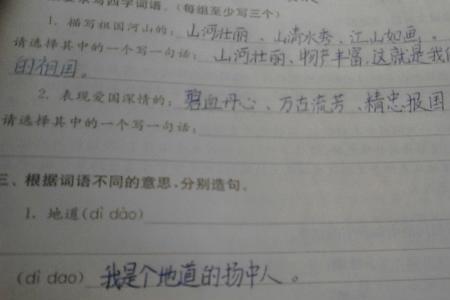 求写四字词语。(每组至少写三个)
1. 描写祖国河山的: 山河壮丽、山清水秀、江山如画。
请选择其中的一个写一句话: 山河壮丽、物产丰富,这就是我们
的祖国。
2. 表现爱国深情的: 碧血丹心、万古流芳、精忠报国
请选择其中的一个写一句话:
三、根据词语不同的意思,分别造句。
1. 地道(dì dào)
(dì dao) 我是个地道的扬中人。